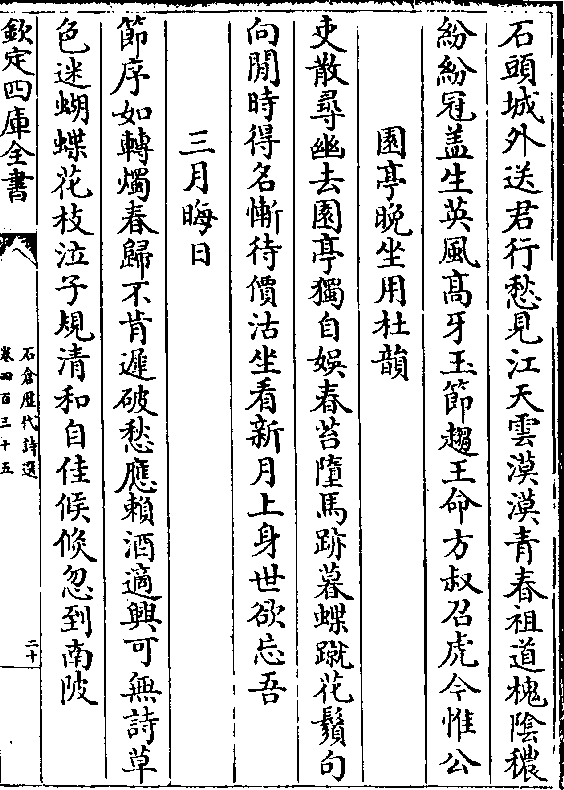 石頭城外送君行愁見江天雲漠漠青春祖道槐陰穠
紛紛冠盖生英風髙牙玉節趨王命方叔召虎今惟公
園亭晚坐用杜韻
吏散尋幽去園亭獨自娱春苔墮馬跡暮蝶蹴花鬚句
向閒時得名慚待價沽坐看新月上身世欲忘吾
三月晦日
節序如轉燭春歸不肯遲破愁應賴酒適興可無詩草
色迷蝴蝶花枝泣子規清和自佳候倐忽到南陂
欽定四庫全書
石倉歴代詩選
卷四百三十五
二十